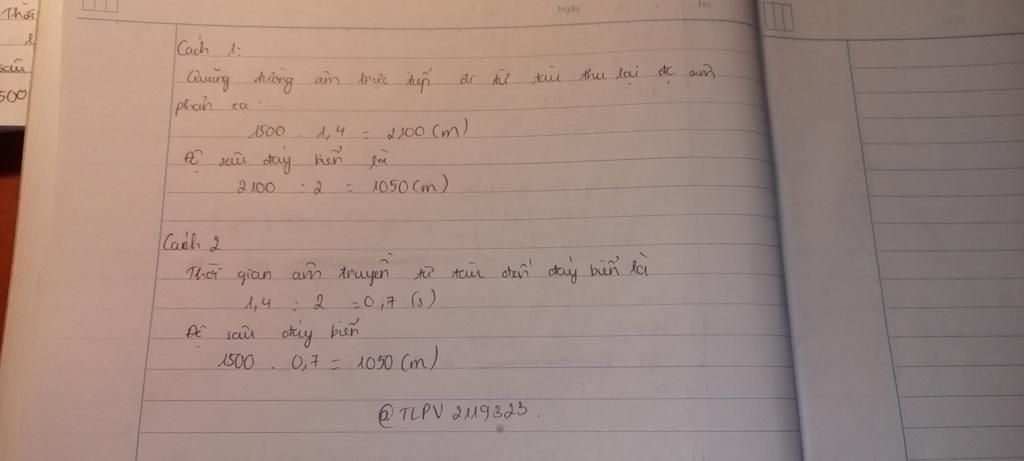 Thời
sâu
500
Ngày
No.
Cách 1:
Quãng đường âm trực tiếp đi từ tàu thu lại đc âm
phản xạ:
1500 . 1,4 = 2100 (m)
Độ sâu đáy biển là
2100 : 2 = 1050 (m)
Cách 2
Thời gian âm truyền từ tàu đến đáy biển là
1,4 : 2 = 0,7 (s)
Độ sâu đáy biển
1500 . 0,7 = 1050 (m)
@TLPV 2119323.